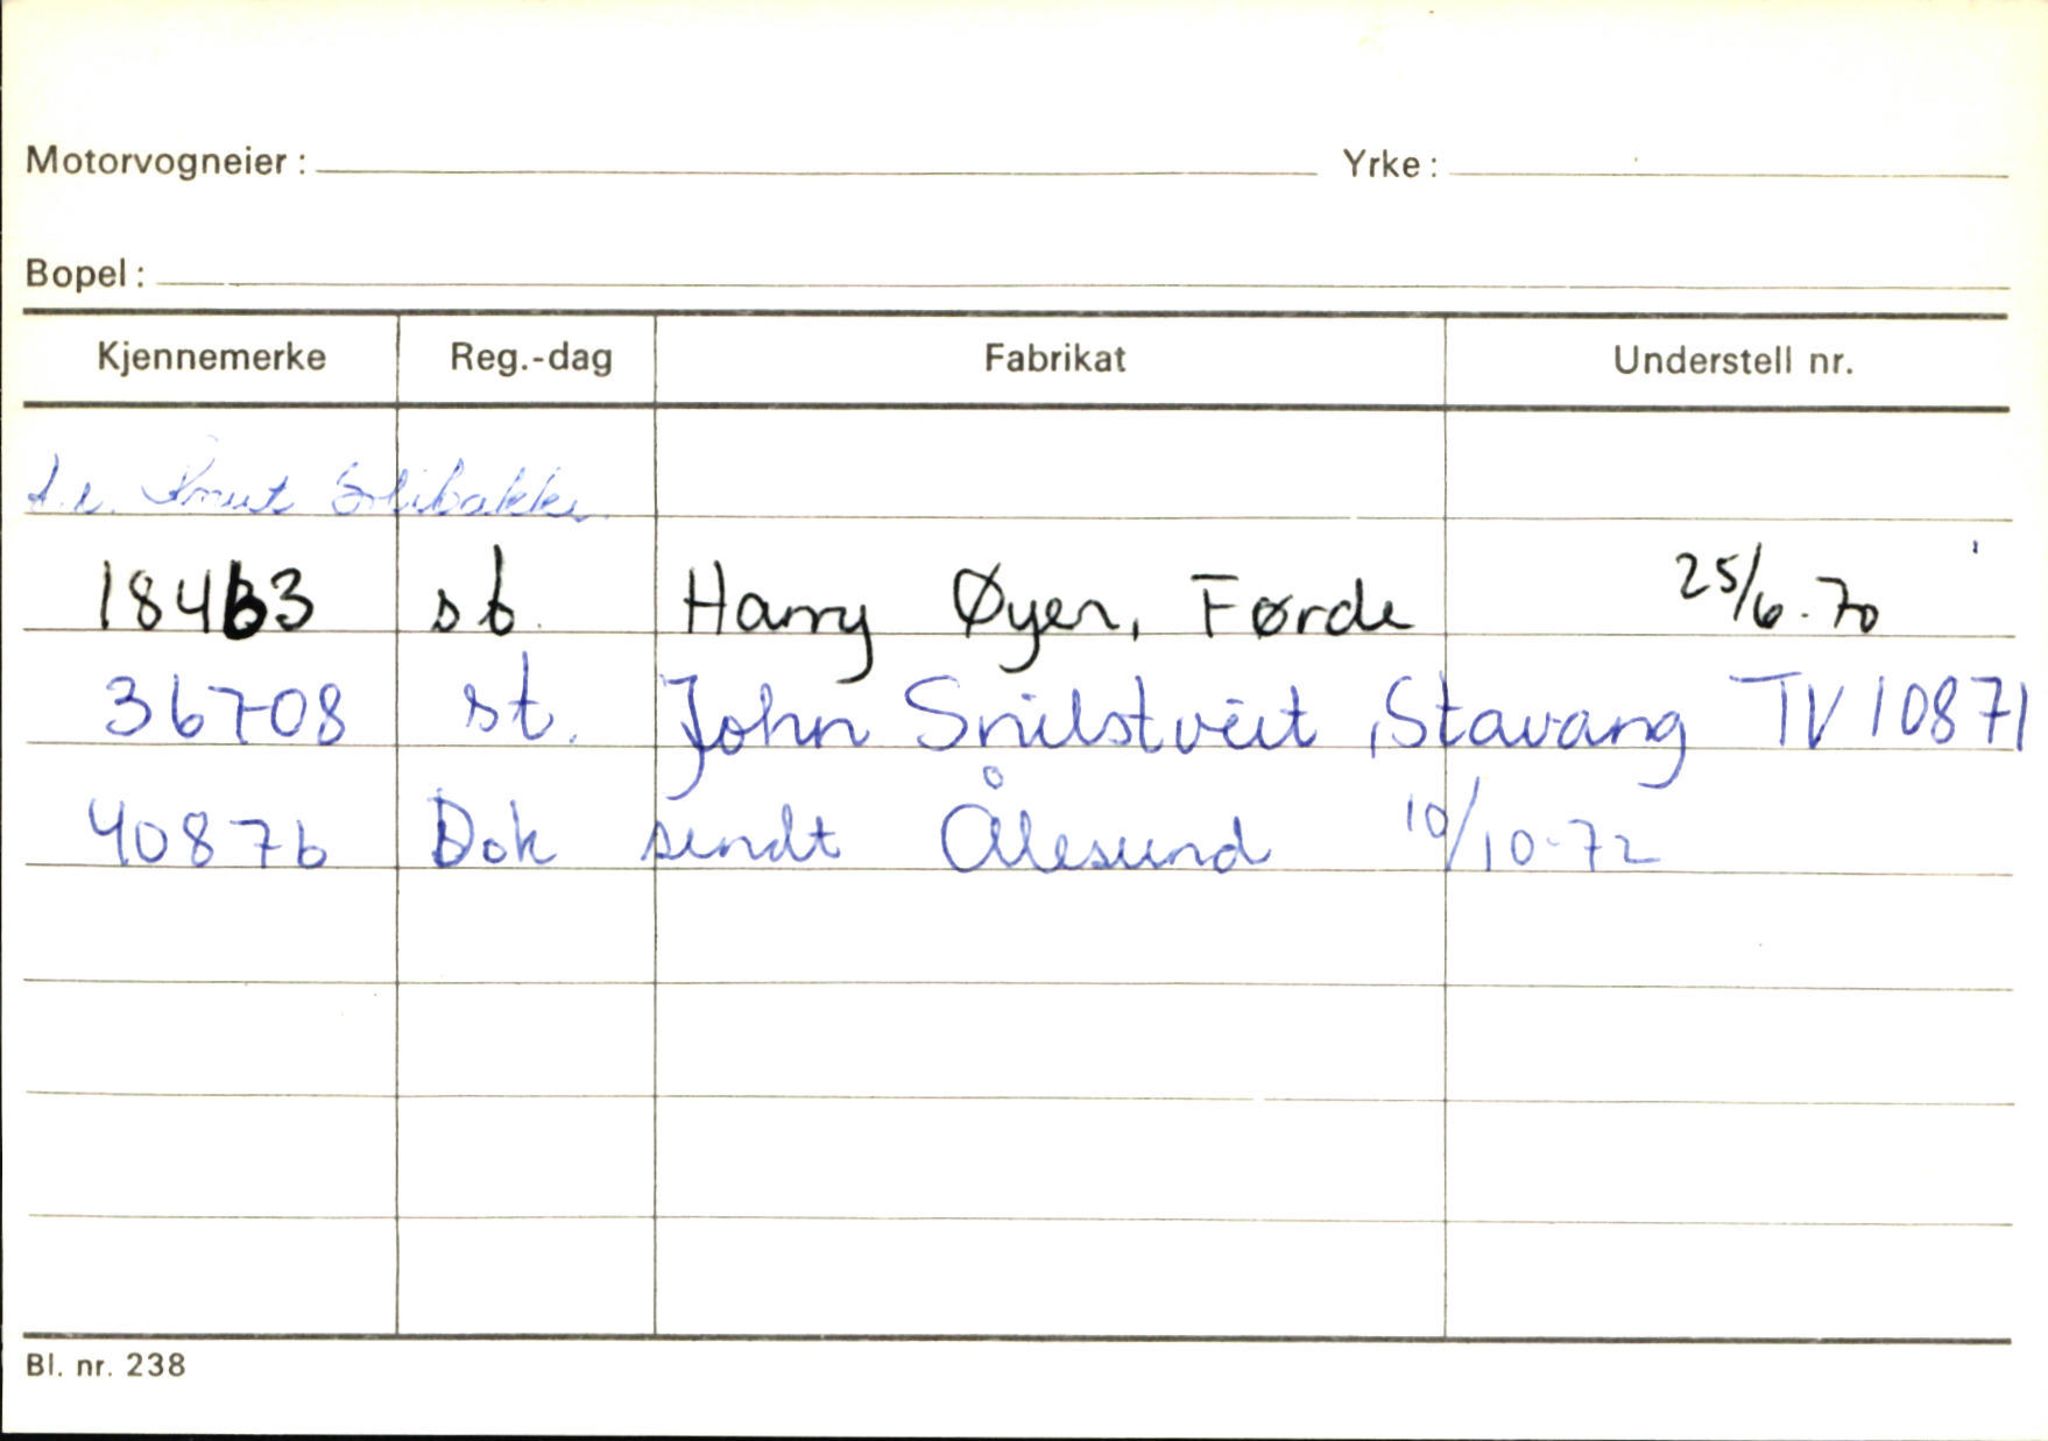 Motorvogneier: Yrke:
Bopel:
Kjennemerke Reg.-dag Fabrikat Understell nr.
Knut
18463 st. Harry Øyen, Førde 25/6-70
36708 st. John Snilstveit, Stavang TV10871
40876 Dok sendt Ålesund 10/10-72
Bl. nr. 238